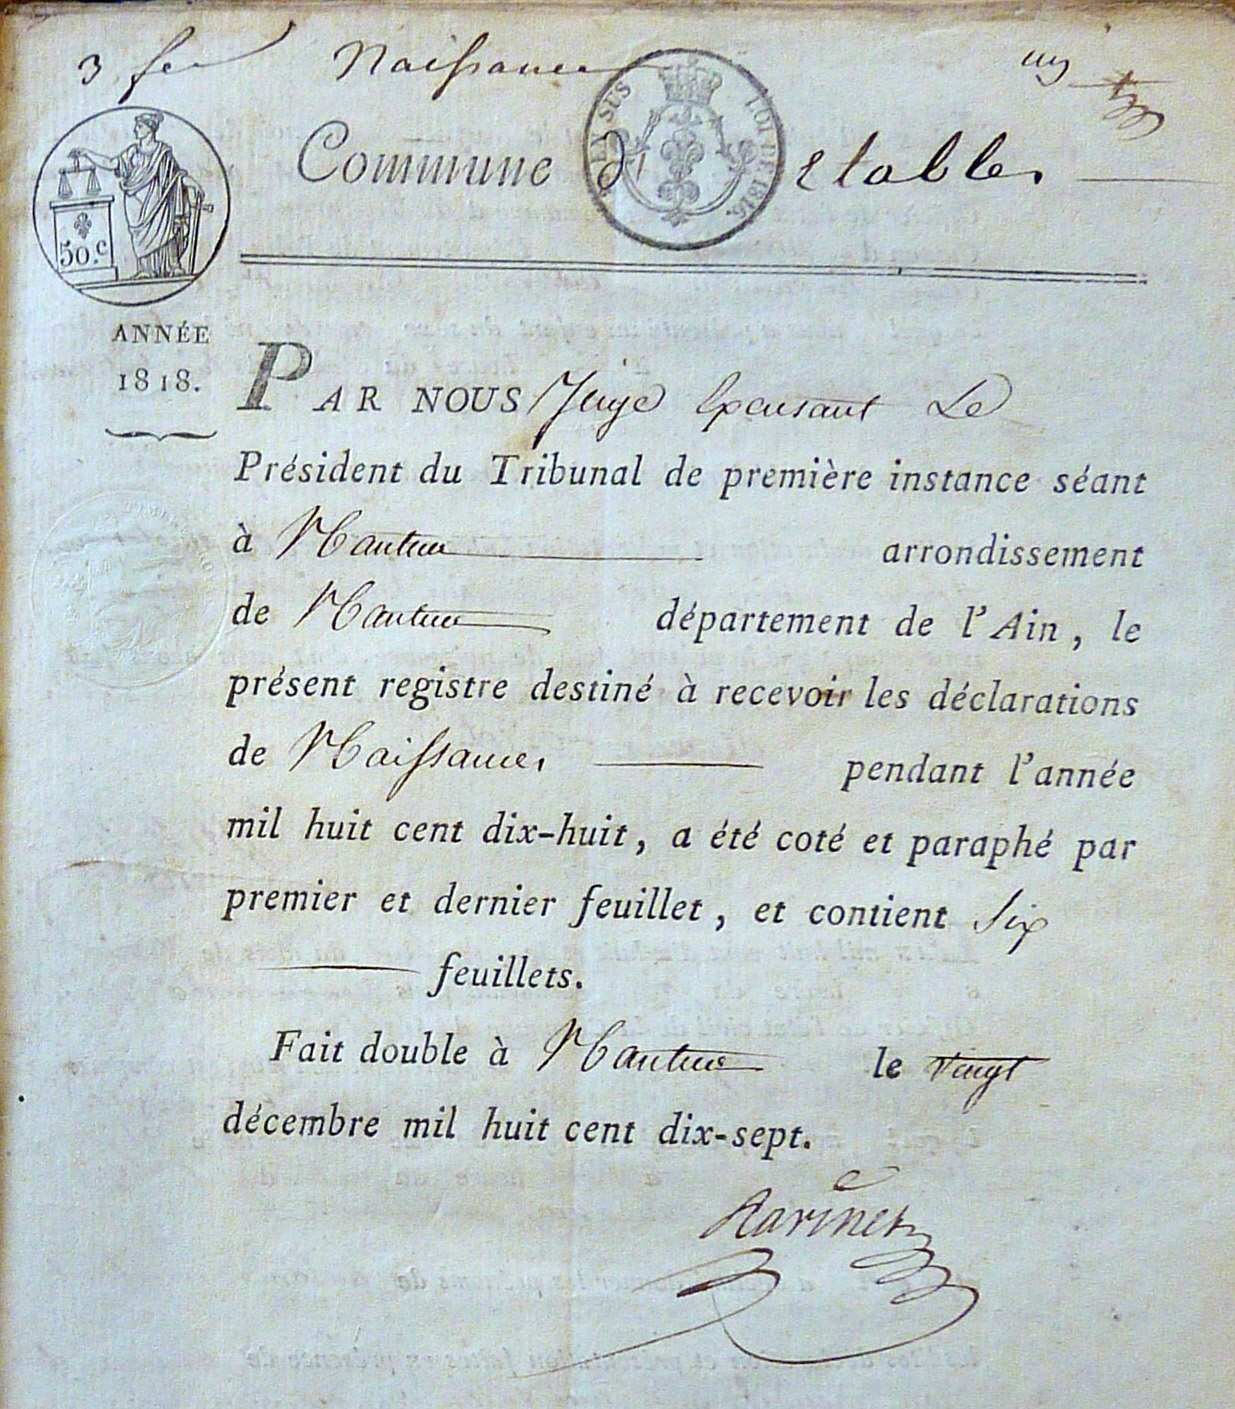 3 fe Naissances un
Commune d' Etables
EN SUS
LOI DE 1816.
50.c
ANNÉE
1818.
PAR NOUS Juge Exerçant Le
Président du Tribunal de première instance séant
à Nantua arrondissement
de Nantua département de l'Ain, le
présent registre destiné à recevoir les déclarations
de Naissances pendant l'année
mil huit cent dix-huit, a été coté et paraphé par
premier et dernier feuillet, et contient Six
feuillets.
Fait double à Nantua le vingt
décembre mil huit cent dix-sept.